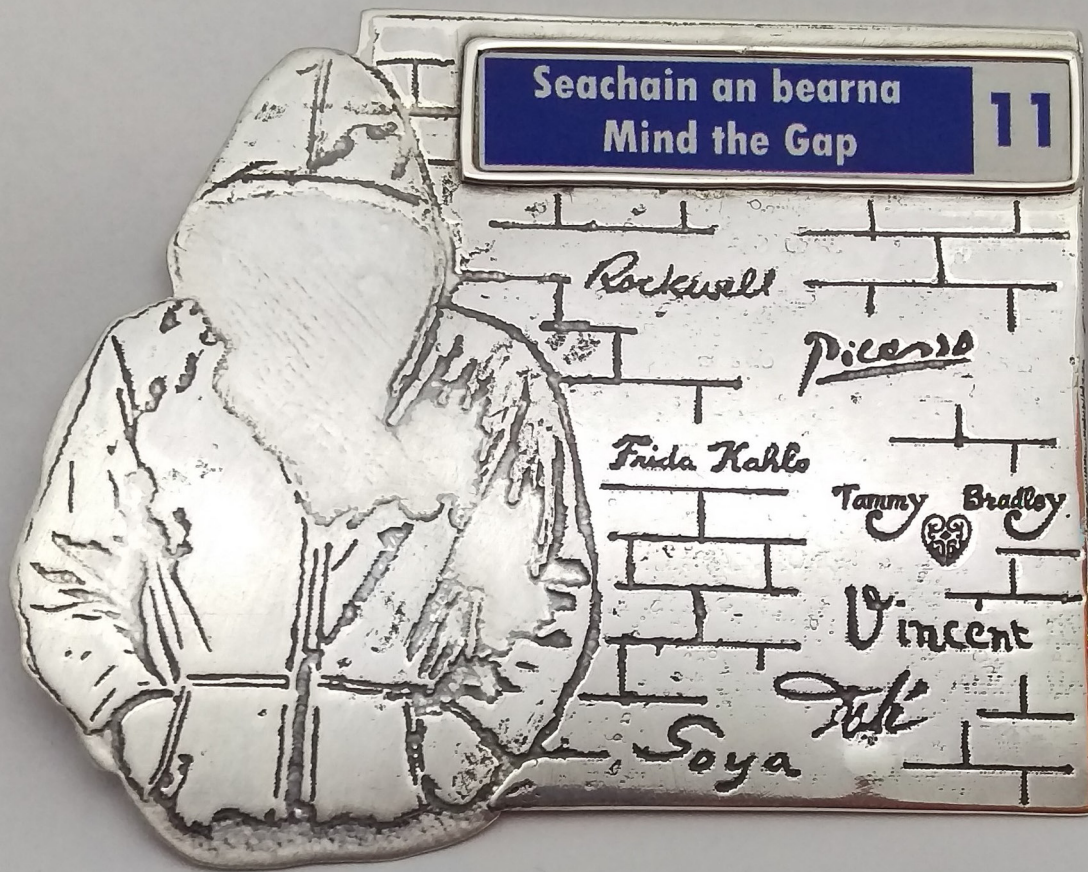 Seachain an bearna
Mind the Gap
11
Rockwell
Picasso
Frida Kahlo
Tammy Bradley
Vincent
Dali
Soya